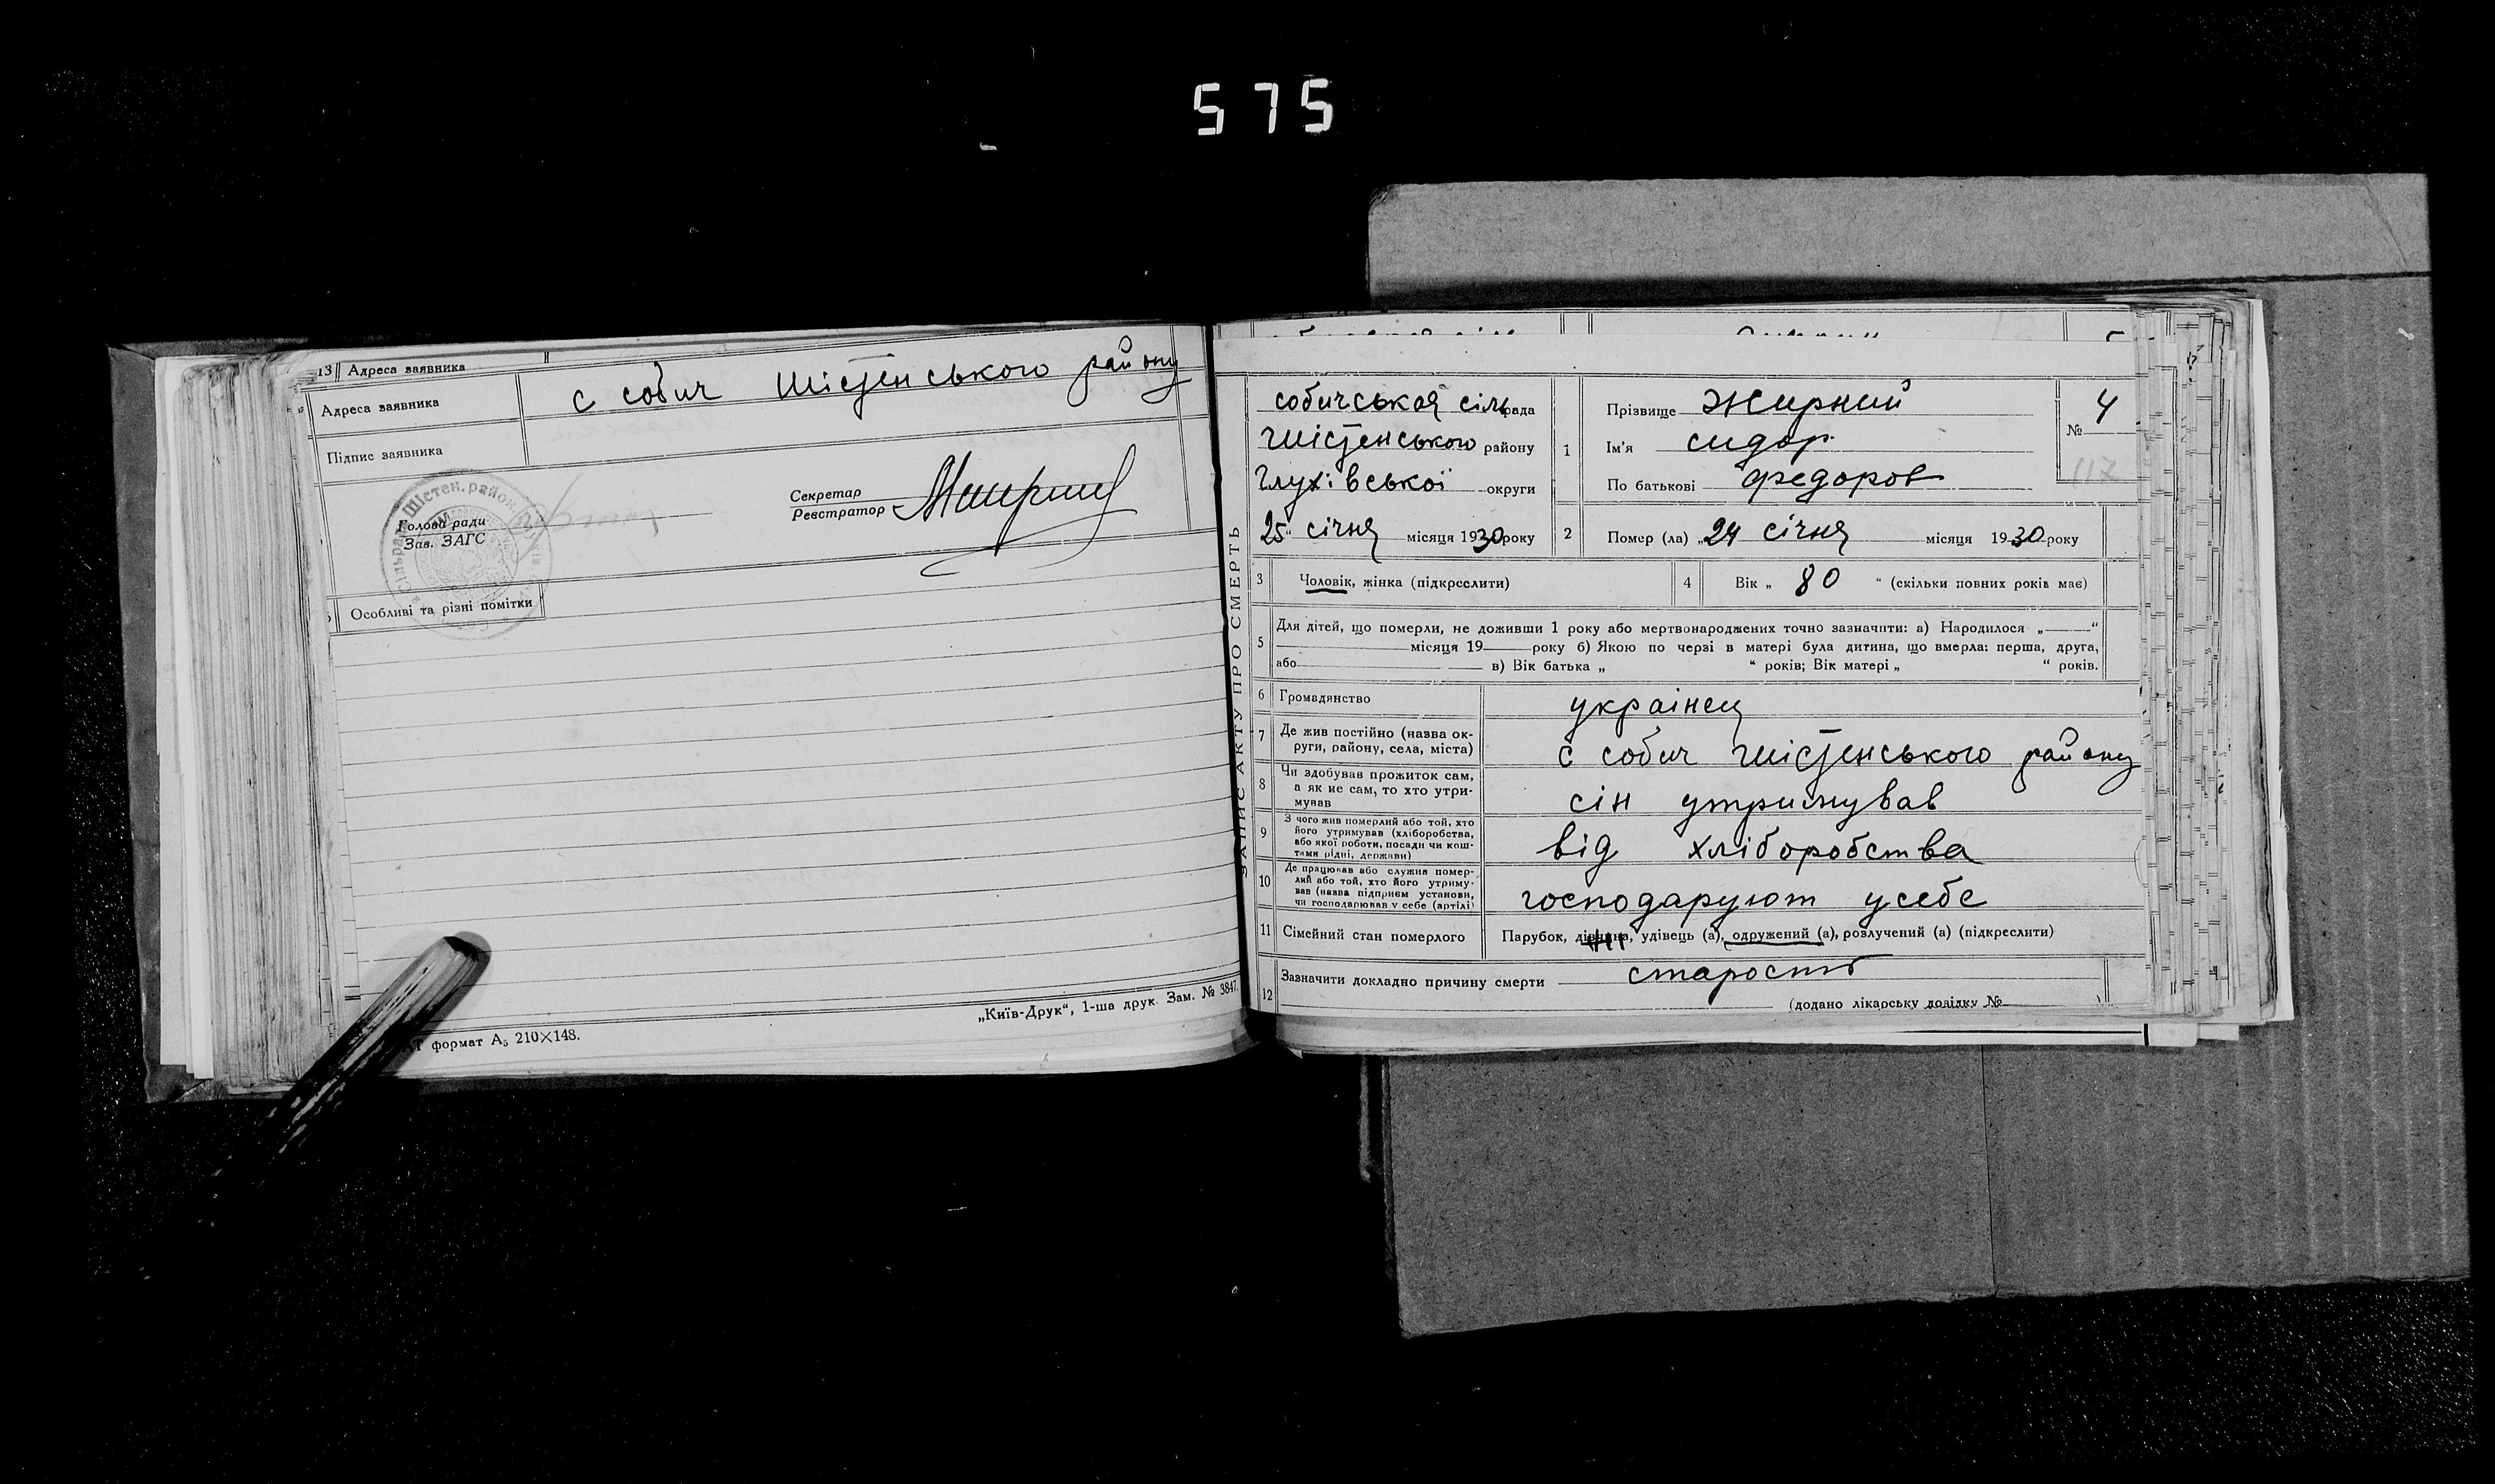 575
13 Адреса заявника
Адреса заявника с собич Шістенського району
Підпис заявника
Шістен. район
Голова ради
Зав. ЗАГС
Секретар
Реєстратор
Особливі та різні помітки
формат А₅ 210×148.
„Київ-Друк“, 1-ша друк. Зам. № 3847.
ЗАПИС АКТУ ПРО СМЕРТЬ
собичськая сільрада
Шістенського району
Глухівської округи
25“ січня місяця 1930 року
1 Прізвище Жирний
Ім'я сидор
По батькові федоров
№ 4
117
2 Помер (ла) „24 січня місяця 1930 року
3 Чоловік, жінка (підкреслити)
4 Вік „ 80 “ (скільки повних років має)
5 Для дітей, що померли, не доживши 1 року або мертвонароджених точно зазначити: а) Народилося „ “
місяця 19 року б) Якою по черзі в матері була дитина, що вмерла: перша, друга,
або в) Вік батька „ “ років; Вік матері „ “ років.
6 Громадянство українец
7 Де жив постійно (назва ок-
руги, району, села, міста) с собич Шістенського району
8 Чи здобував прожиток сам,
а як не сам, то хто утри-
мував сін утримував
9 З чого жив померлий або той, хто
його утримував (хліборобства,
або якої роботи, посади чи кош-
тами рідні, держави) від хліборобства
10 Де працював або служив помер-
лий або той, хто його утриму-
вав (назва підприєм установи,
чи господарював у себе (артілі) господаруют усебе
11 Сімейний стан померлого Парубок, дівчина, удівець (а), одружений (а), розлучений (а) (підкреслити)
12 Зазначити докладно причину смерти старость
(додано лікарську довідку № )